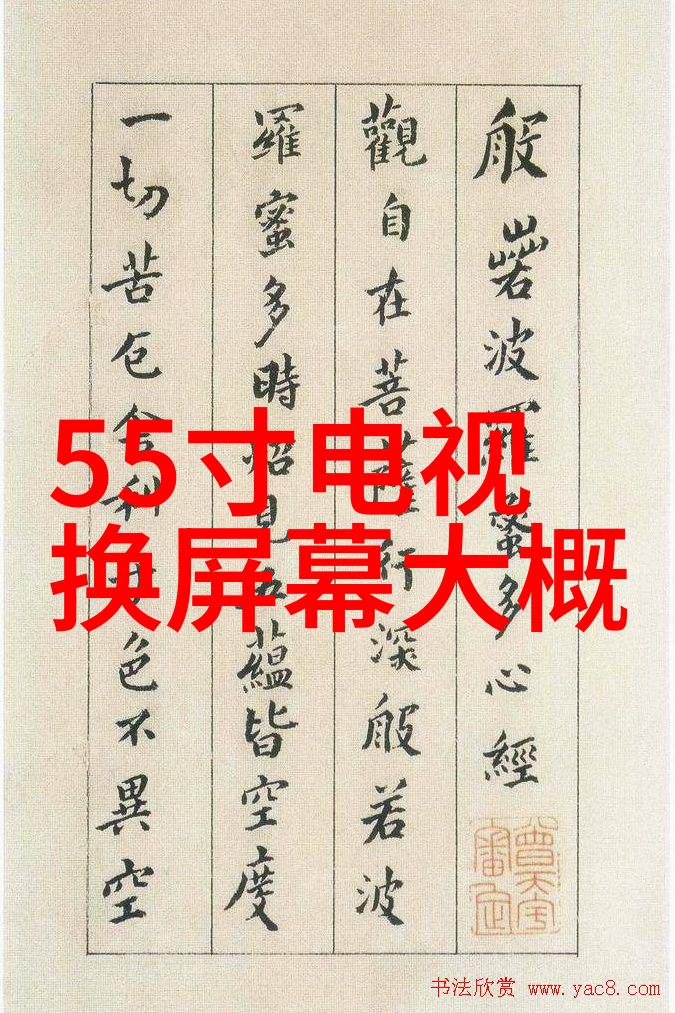 般若波羅蜜多心經
觀自在菩薩行深般若波
羅蜜多時炤見五蘊皆空度
一切苦厄舍利子色不異空
55寸电视
换屏幕大概
书法欣赏 www.yac8.com